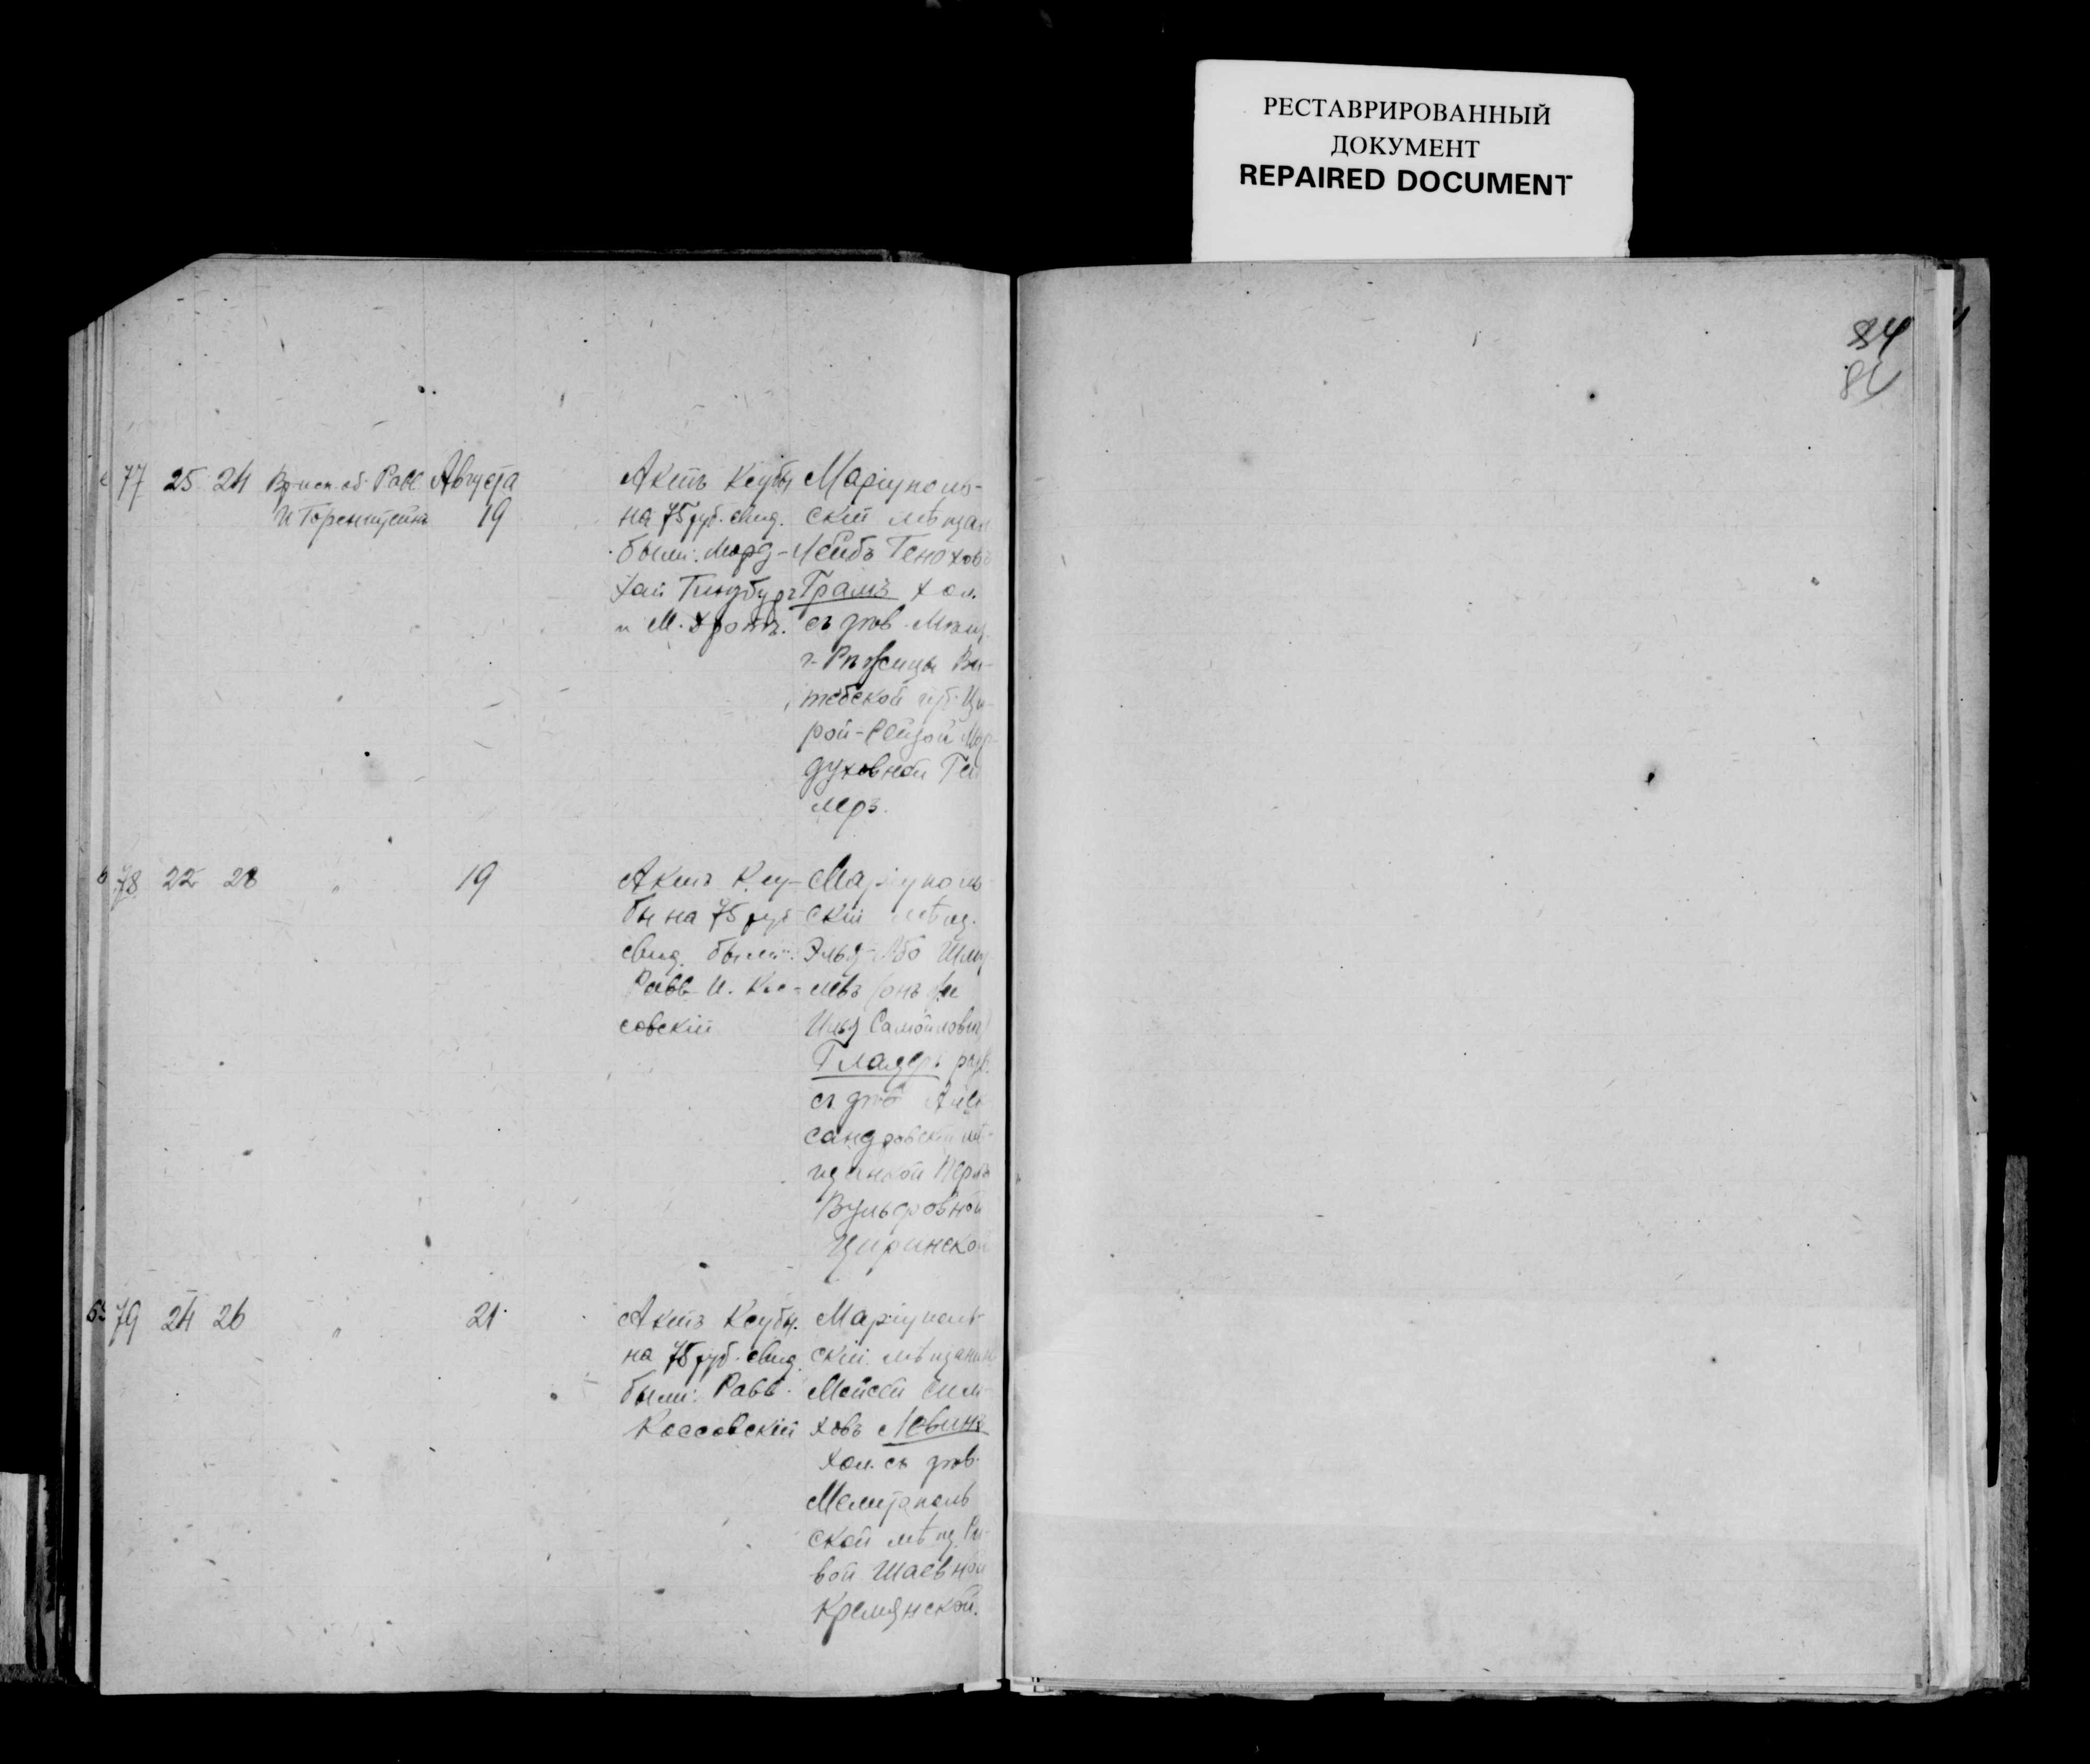 РЕСТАВРИРОВАННЫЙ
ДОКУМЕНТ
REPAIRED DOCUMENT
84
77 25 24 Вр. исп. об. Равв. Августа
И Горенштейнъ 19
Актъ Ксубы
на 75 руб. свид.
были: Морд-
хай Гинзбургъ
и М.
Маріуполь-
скій мѣщан
Лейбъ Генохов
Грамъ хол.
съ дѣв. Мѣщ.
г. Рѣжицы Ви-
тебской губ.
рой-Рейзой Мор-
духовной Гел
леръ.
78 22 28 " 19
Актъ Ксу-
бы на 75 руб
свид. были:
Равв И. Кос-
совскій
Маріуполь-
скій мѣщ.
Элья-Або Шму
левъ (онъ же
Илья Самойлович)
Гладеръ разв.
съ дѣв Алек
сандровской мѣ-
щанкой Перлъ
Вульфовной
Циринской
79 24 26 " 21
Актъ Ксубы.
на 75 руб. свид.
были: Равв.
Коссовскій
Маріуполь-
скій мѣщанинъ
Мойсей Сим-
ховъ Левинъ
хол. съ дѣв.
Мелитополь
ской мѣщ. Ри-
вой Шаевной
Кремянской.